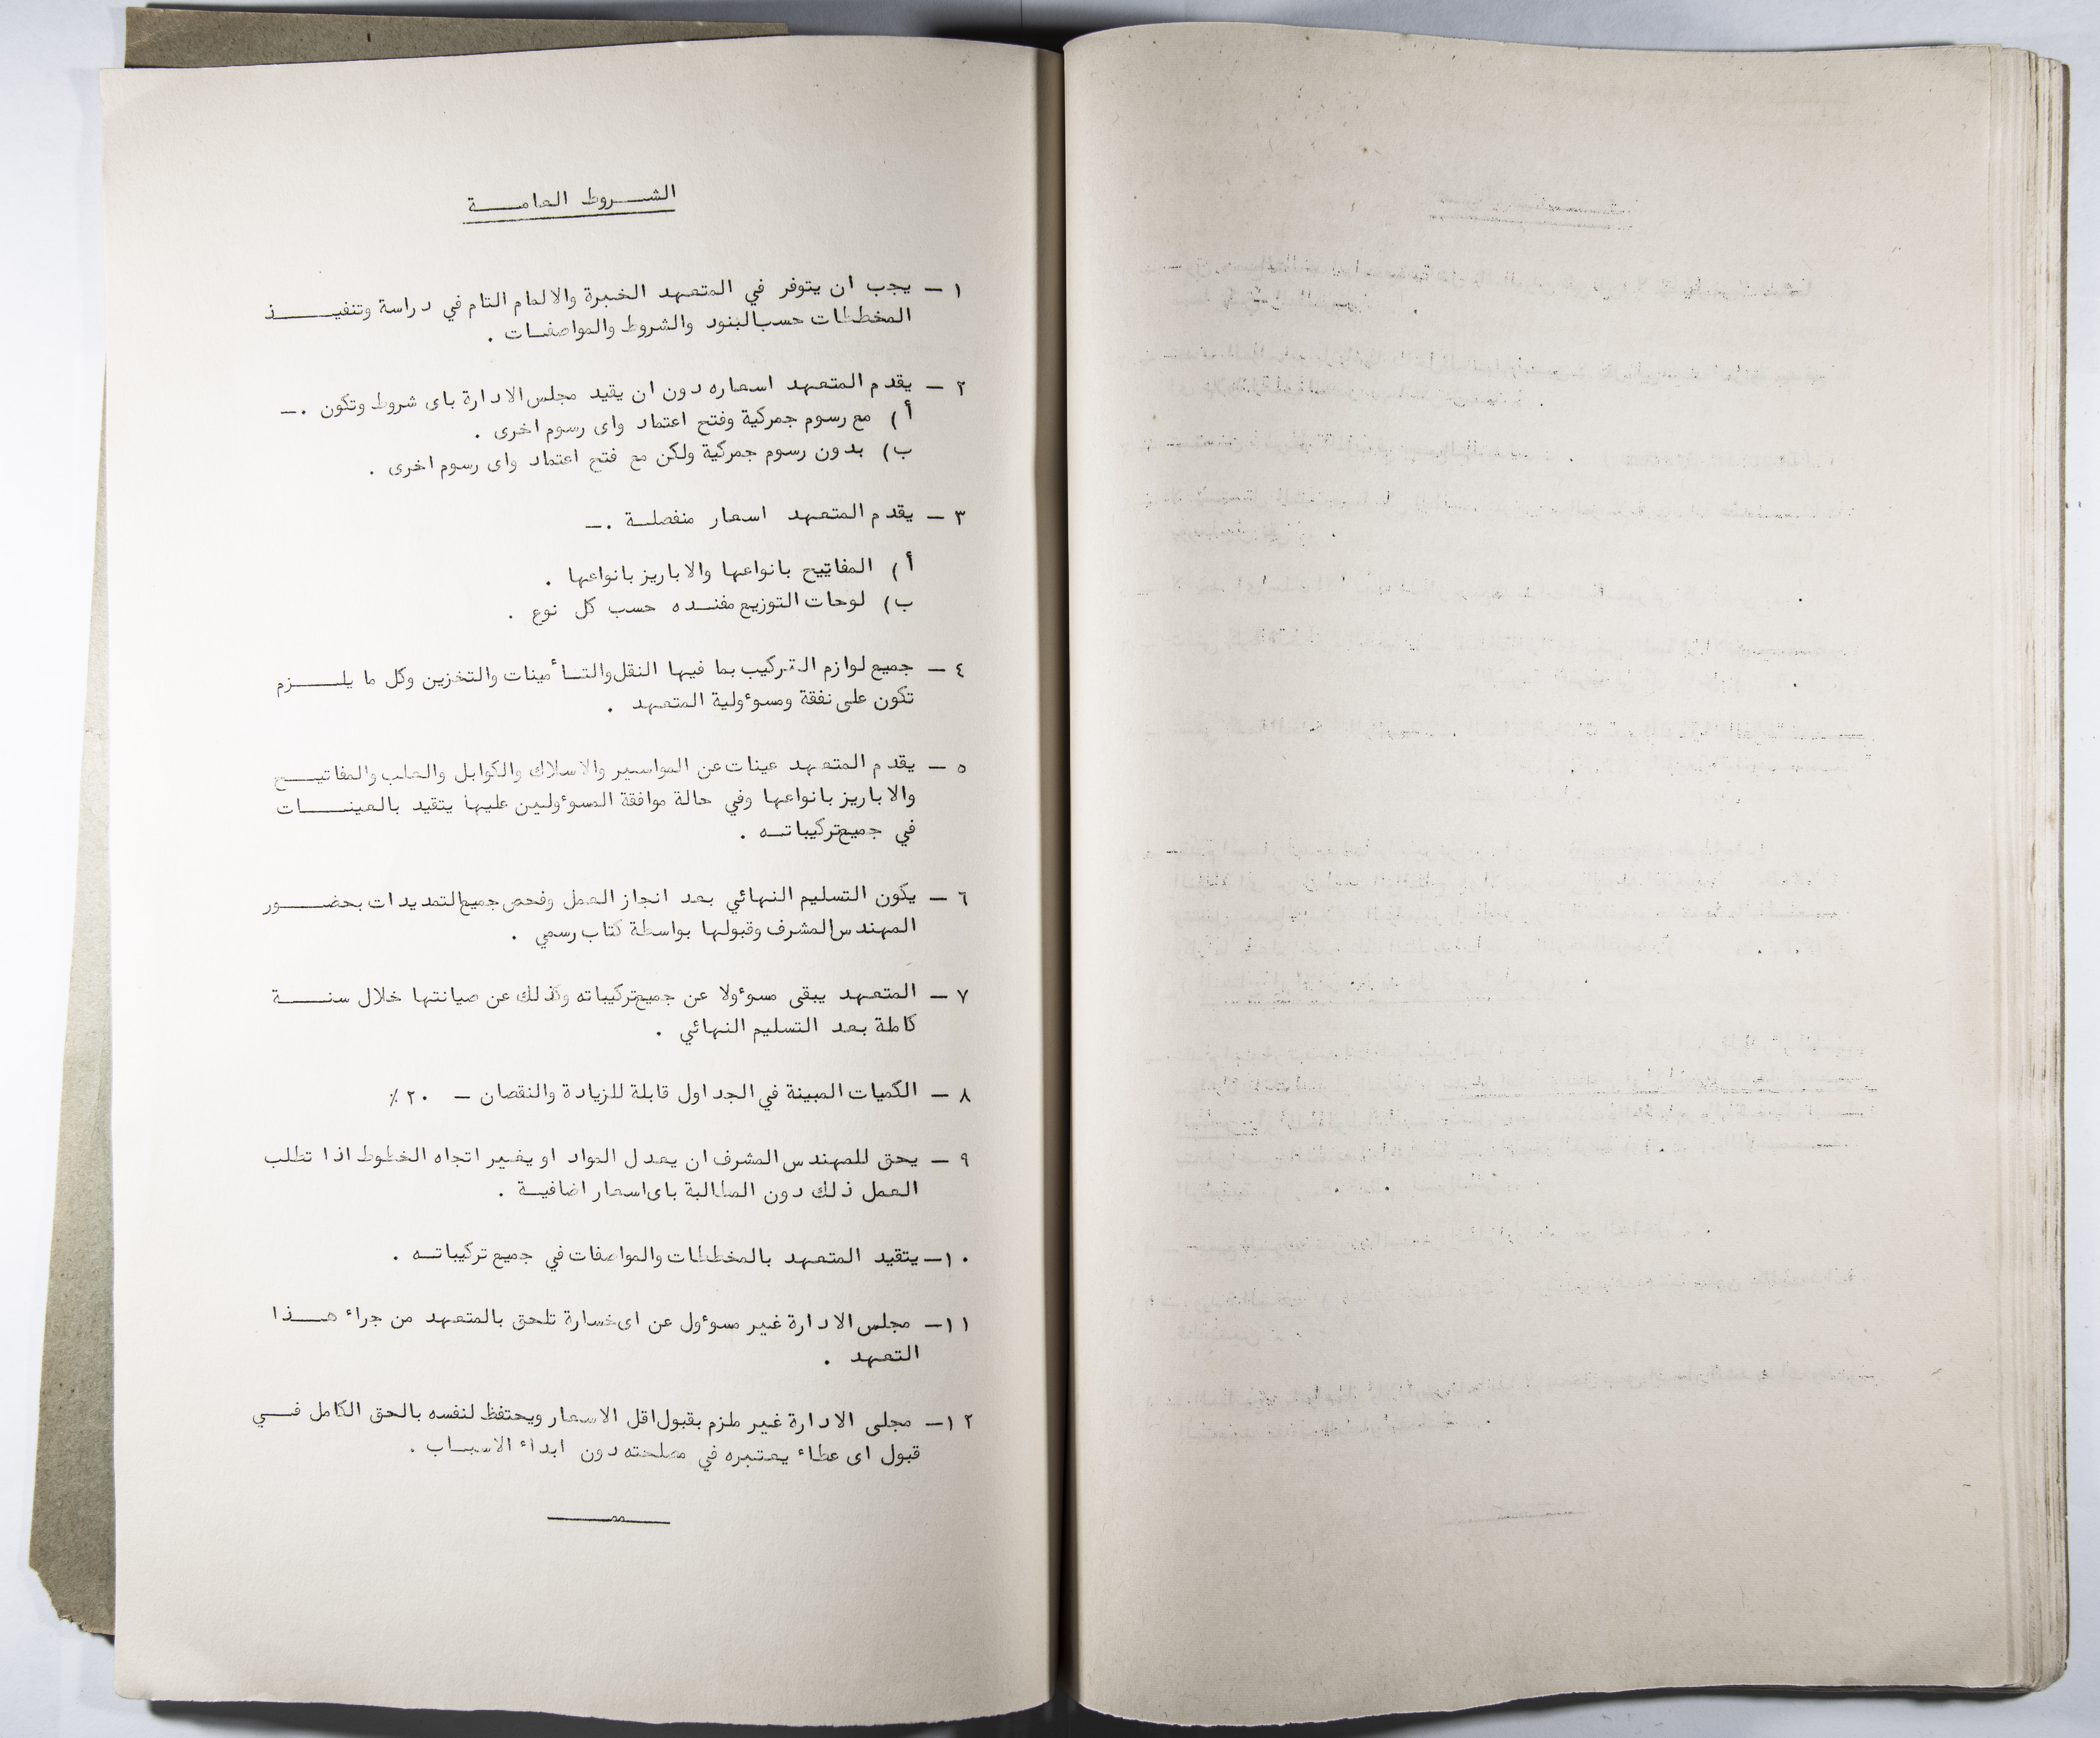 الشروط العامة
١ — يجب ان يتوفر في المتعهد الخبرة والالمام التام في دراسة وتنفيذ
المخططات حسب البنود والشروط والمواصفات .
٢ — يقدم المتعهد اسعاره دون ان يقيد مجلس الادارة باى شروط وتكون .—
أ ) مع رسوم جمركية وفتح اعتماد واى رسوم اخرى .
ب) بدون رسوم جمركية ولكن مع فتح اعتماد واى رسوم اخرى .
٣ — يقدم المتعهد اسعار منفصلة .—
أ ) المفاتيح بانواعها والاباريز بانواعها .
ب) لوحات التوزيع مفنده حسب كل نوع .
٤ — جميع لوازم التركيب بما فيها النقل والتأمينات والتخزين وكل ما يلزم
تكون على نفقة ومسوءولية المتعهد .
٥ — يقدم المتعهد عينات عن المواسير والاسلاك والكوابل والعلب والمفاتيح
والاباريز بانواعها وفي حالة موافقة المسوءولين عليها يتقيد بالعينات
في جميع تركيباته .
٦ — يكون التسليم النهائي بعد انجاز العمل وفحص جميع التمديدات بحضور
المهندس المشرف وقبولها بواسطة كتاب رسمي .
٧ — المتعهد يبقى مسوءولا عن جميع تركيباته وكذلك عن صيانتها خلال سنة
كاملة بعد التسليم النهائي .
٨ — الكميات المبينة في الجداول قابلة للزيادة والنقصان — ٢٠ ٪
٩ — يحق للمهندس المشرف ان يعدل المواد او يغير اتجاه الخطوط اذا تطلب
العمل ذلك دون المطالبة باى اسعار اضافية .
١٠— يتقيد المتعهد بالمخططات والمواصفات في جميع تركيباته .
١١— مجلس الادارة غير مسوءول عن اى خسارة تلحق بالمتعهد من جراء هذا
التعهد .
١٢— مجلى الادارة غير ملزم بقبول اقل الاسعار ويحتفظ لنفسه بالحق الكامل في
قبول اى عطاء يعتبره في مصلحته دون ابداء الاسباب .